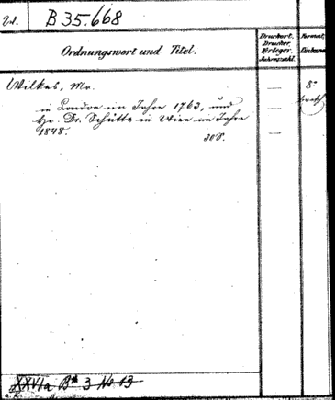 B 35.668
Ordnungswort und Titel.
Druckort.
Drucker.
Verleger.
Jahrzahl.
Format,
Einband
Wilkes, Mr.
in London im Jahre 1763, und
Hr. Dr. Schütte in Wien im Jahre
1848.
30 S.
8°
XXVIa B* 3 No 13